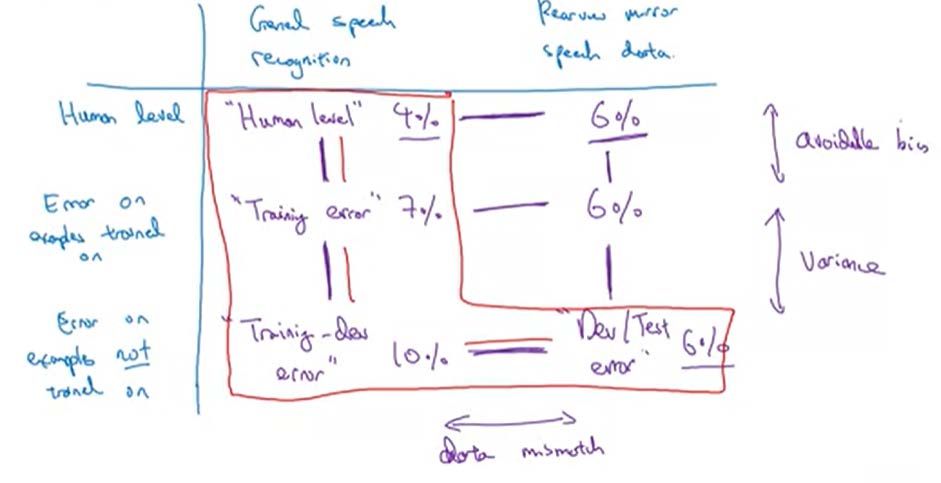 General speech recognition
Rearview mirror speech data.
Human level
"Human level" 4% 6%
avoidable bias
Error on examples trained on
"Training error" 7% 6%
Variance
Error on examples not trained on
"Training-dev error" 10%
"Dev/Test error" 6%
data mismatch